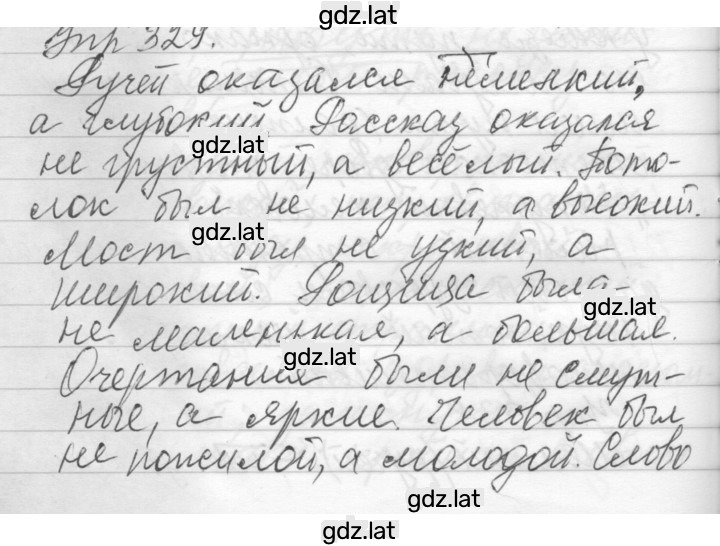 gdz.lat
Упр 329.
Ручей оказался не мелкий,
а глубокий. Рассказ оказался
gdz.lat
не грустный, а весёлый. Пото-
лок был не низкий, а высокий.
gdz.lat
Мост был не узкий, а
широкий. Рощица была
gdz.lat
не маленькая, а большая.
gdz.lat
Очертания были не смут-
ные, а яркие. Человек был
не пожилой, а молодой. Слово
gdz.lat
gdz.lat